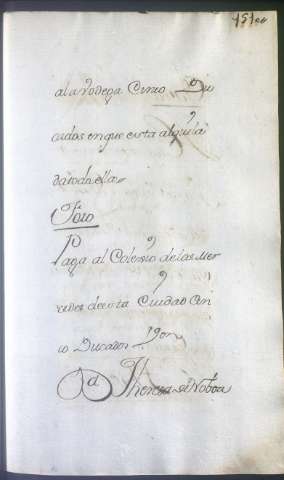 a la Vodega Cinco Du
cados en que esta alquila
da toda ella
Foro
Paga al Colexio de las Mer
cedes de esta Ciudad Cin
co Ducados
Dª Theresa de Noboa